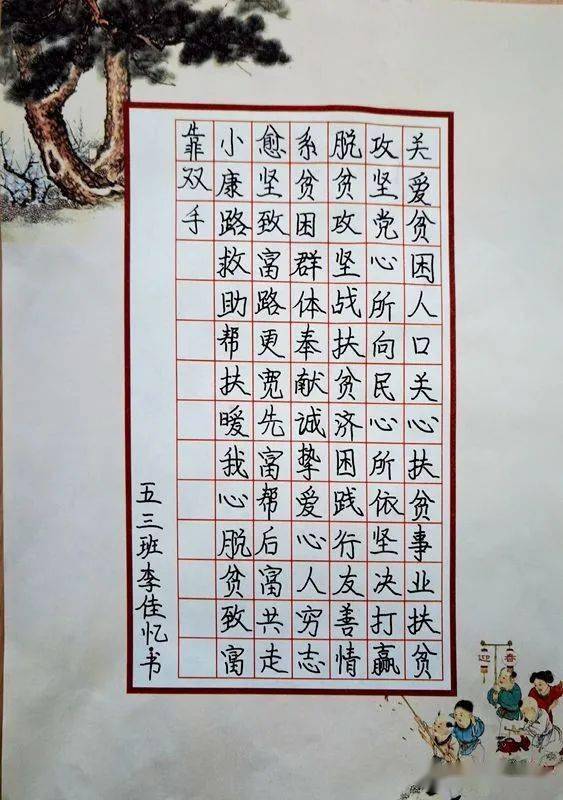 关爱贫困人口关心扶贫事业扶贫
攻坚党心所向民心所依坚决打赢
脱贫攻坚战扶贫济困践行友善情
系贫困群体奉献诚挚爱心人穷志
愈坚致富路更宽先富帮后富共走
小康路救助帮扶暖我心脱贫致富
靠双手
五三班李佳忆书
迎春